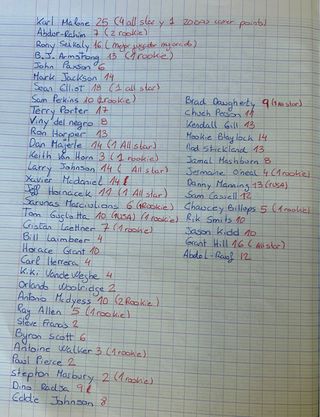 Karl Malone 25 (4 all star y 1 20000 career points)
Abdur-Rahim 7 (2 rookie)
Rony Seikaly 16 (mejor jugador mejorado)
B.J. Armstrong 13 (1 rookie)
John Paxson 6
Mark Jackson 14
Sean Elliot 18 (1 all star)
Sam Perkins 10 (1 rookie)
Terry Porter 17
Viny del negro 8
Ron Harper 13
Dan Majerle 14 (1 All star)
Keith Van Horn 3 (1 rookie)
Larry Johnson 14 ( All star)
Xavier Mcdaniel 14
Jeff Hornacek 17 (1 All star)
Sarunas Marciulionis 6 (1 Rookie)
Tom Gugliotta 10 (USA) (1 rookie)
Cristian Laettner 7 (1 rookie)
Bill Laimbeer 4
Horace Grant 10
Carl Herrera 4
Kiki VandeWeghe 4
Orlando Woolridge 2
Antonio Mcdyess 10 (2 Rookie)
Ray Allen 5 (1 rookie)
Steve Francis 2
Byron Scott 6
Antoine Walker 3 (1 rookie)
Paul Pierce 2
Stephon Marbury 2 (1 rookie)
Dino Radja 9
Eddie Johnson 8
Brad Daugherty 9 (1 All star)
Chuck Person 11
Kendall Gill 13
Mookie Blaylock 14
Rod Strickland 13
Jamal Mashburn 8
Jermaine O'neal 4 (1 rookie)
Danny Manning 13 (USA)
Sam Cassell 12
Chauncey Billups 5 (1 rookie)
Rik Smits 10
Jason Kidd 10
Grant Hill 16 (All star)
Abdul-Raof 12